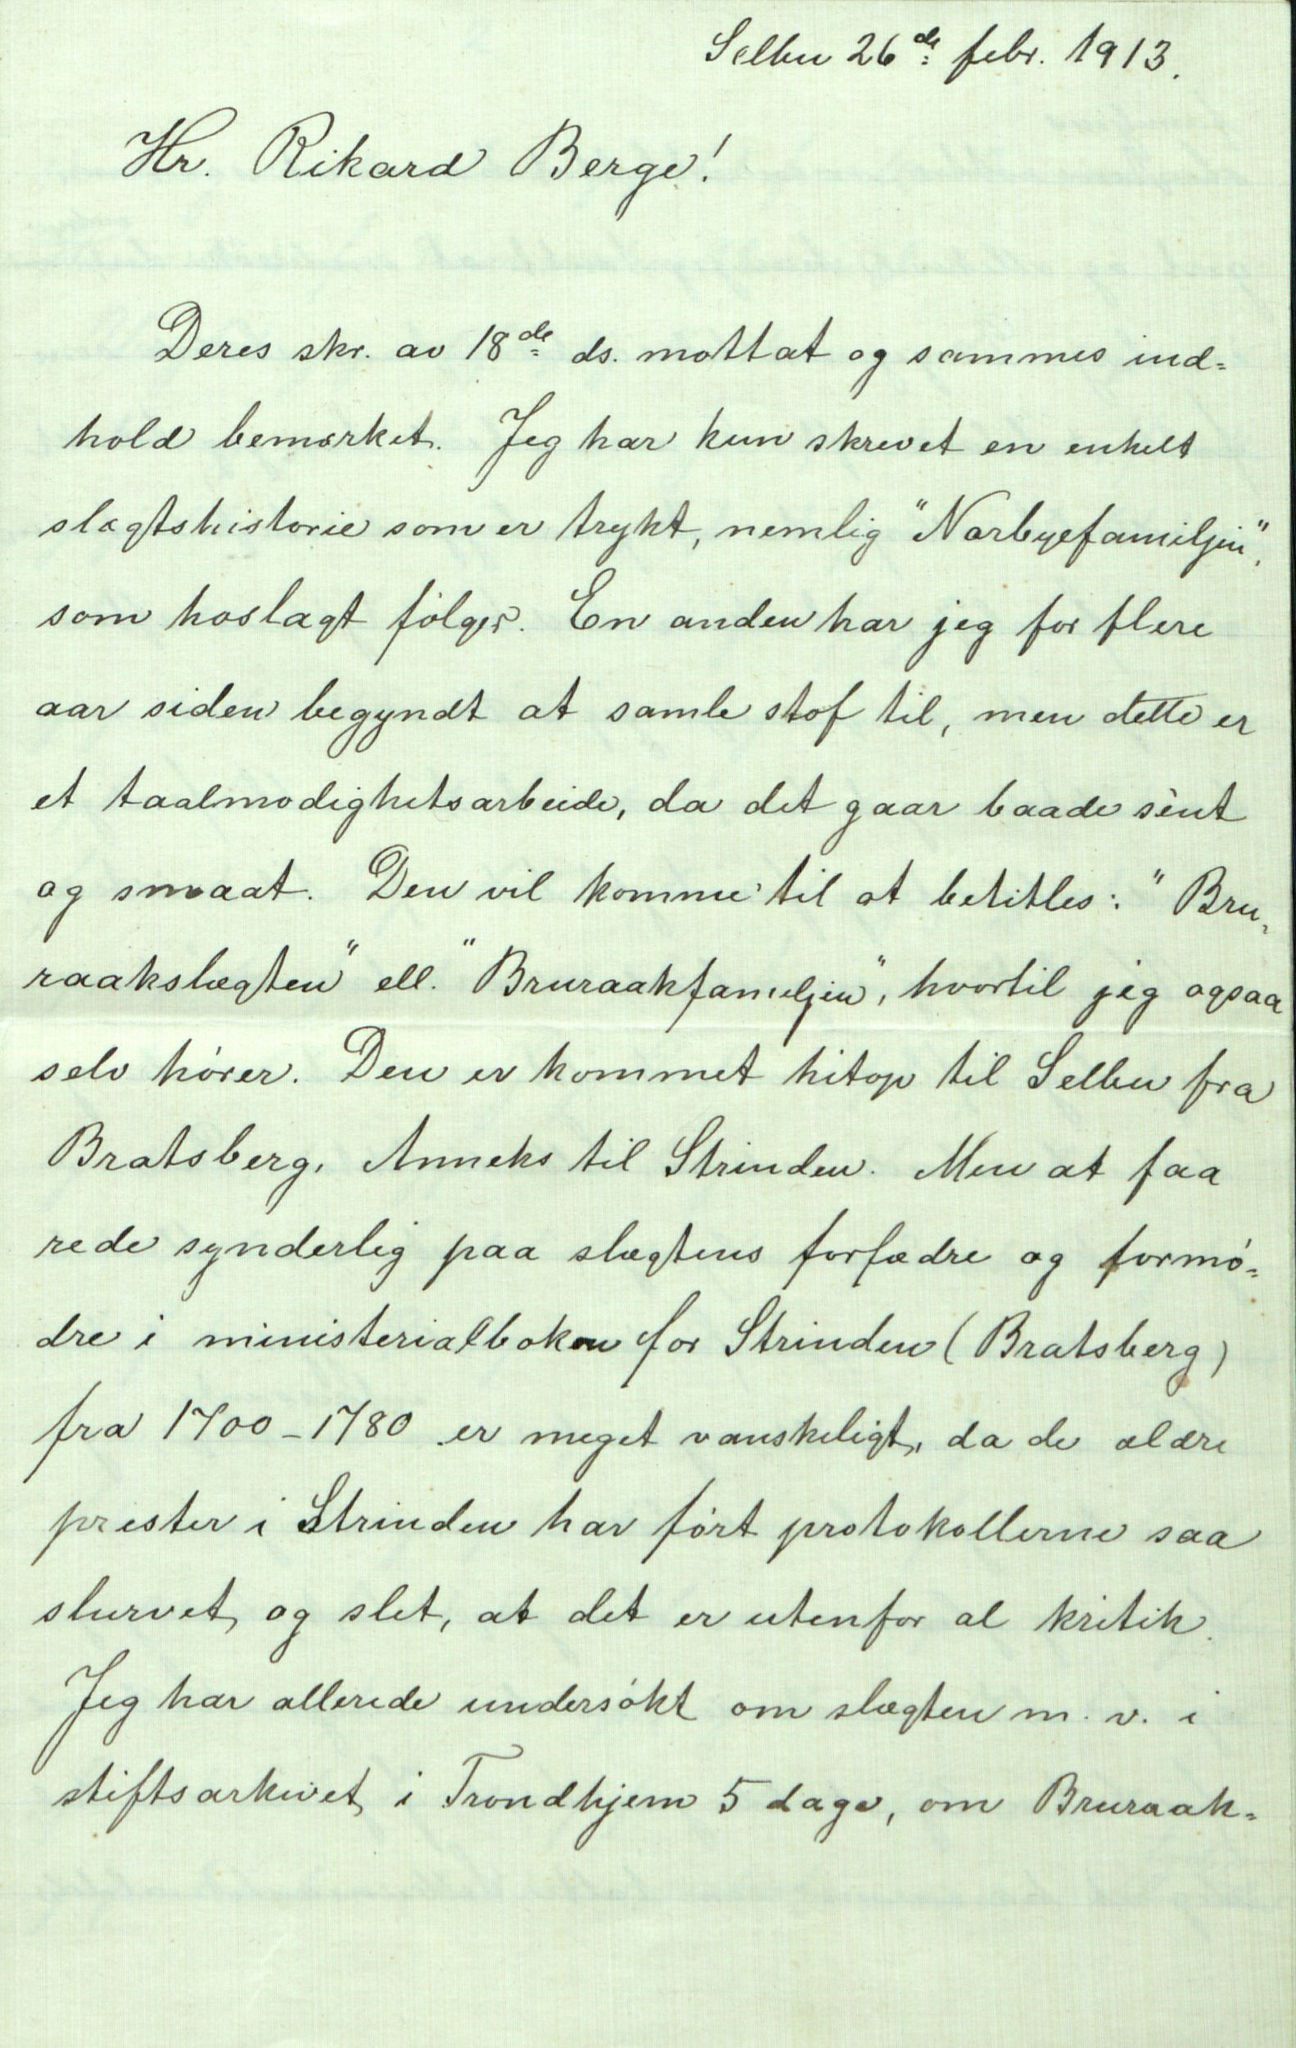 Selbu 26de febr. 1913.
Hr. Rikard Berge!
Deres skr. av 18de ds. mottat og sammes ind-
hold bemerket. Jeg har kun skrevet en enkelt
slægtshistorie som er trykt, nemlig "Narbyefamiljen",
som hoslagt følger. En anden har jeg for flere
aar siden begyndt at samle stof til, men dette er
et taalmodighetsarbeide, da det gaar baade sènt
og smaat. Den vil komme til at betitles: "Bru-
raakslægten" ell. "Bruraakfamiljen", hvortil jeg ogsaa
selv hører. Den er kommet hitop til Selbu fra
Bratsberg, Anneks til Strinden. Men at faa
rede synderlig paa slægtens forfædre og formø-
dre i ministerialboken for Strinden (Bratsberg)
fra 1700-1780 er meget vanskeligt, da de ældre
prester i Strinden har ført protokollerne saa
slurvet og slet, at det er utenfor al kritik.
Jeg har allerede undersøkt om slægten m. v. i
stiftsarkivet i Trondhjem 5 dage, om Bruraak-